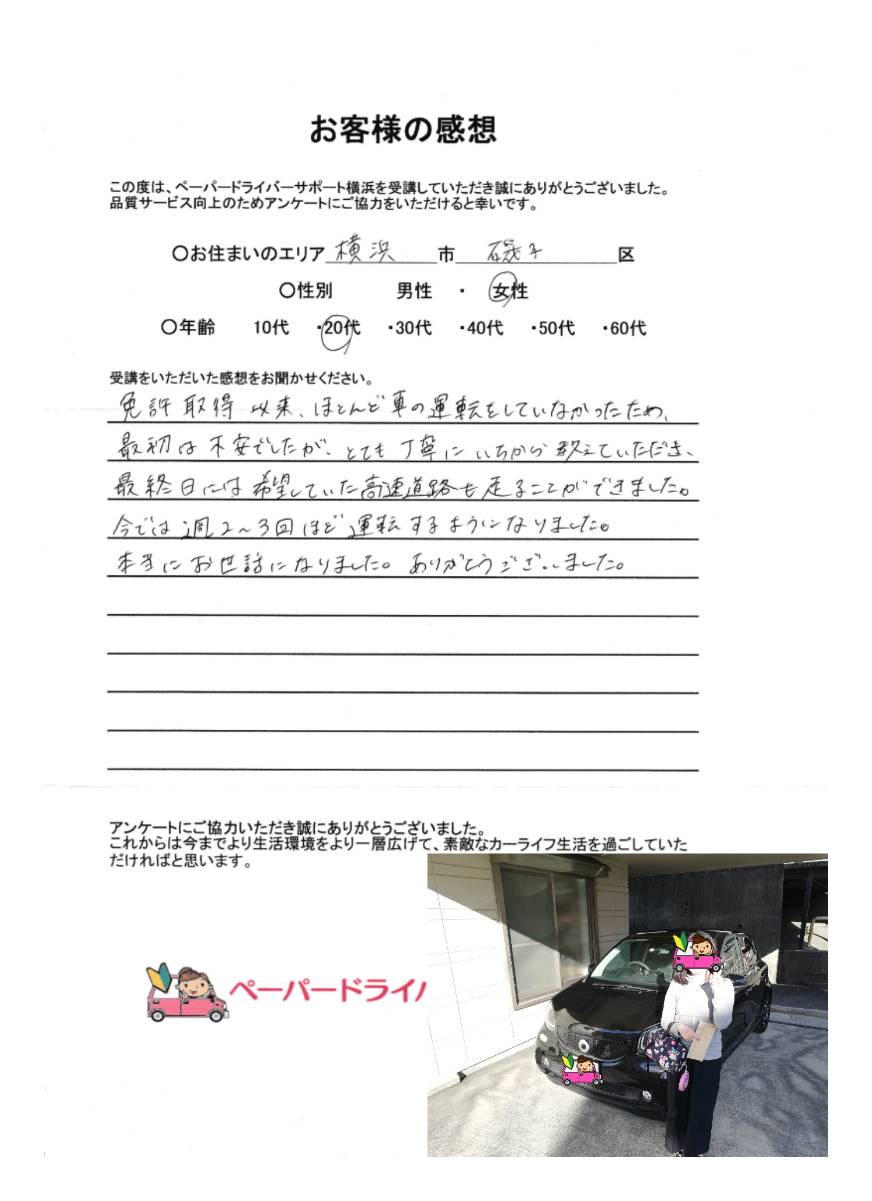 お客様の感想
この度は、ペーパードライバーサポート横浜を受講していただき誠にありがとうございました。
品質サービス向上のためアンケートにご協力をいただけると幸いです。
〇お住まいのエリア 横浜 市 磯子 区
〇性別 男性 ・ 女性
〇年齢 10代 ・20代 ・30代 ・40代 ・50代 ・60代
受講をいただいた感想をお聞かせください。
免許取得以来、ほとんど車の運転をしていなかったため、
最初は不安でしたが、とても丁寧にいちから教えていただき、
最終日には希望していた高速道路も走ることができました。
今では週2〜3回ほど運転するようになりました。
本当にお世話になりました。ありがとうございました。
アンケートにご協力いただき誠にありがとうございました。
これからは今までより生活環境をより一層広げて、素敵なカーライフ生活を過ごしていた
だければと思います。
ペーパードライバ